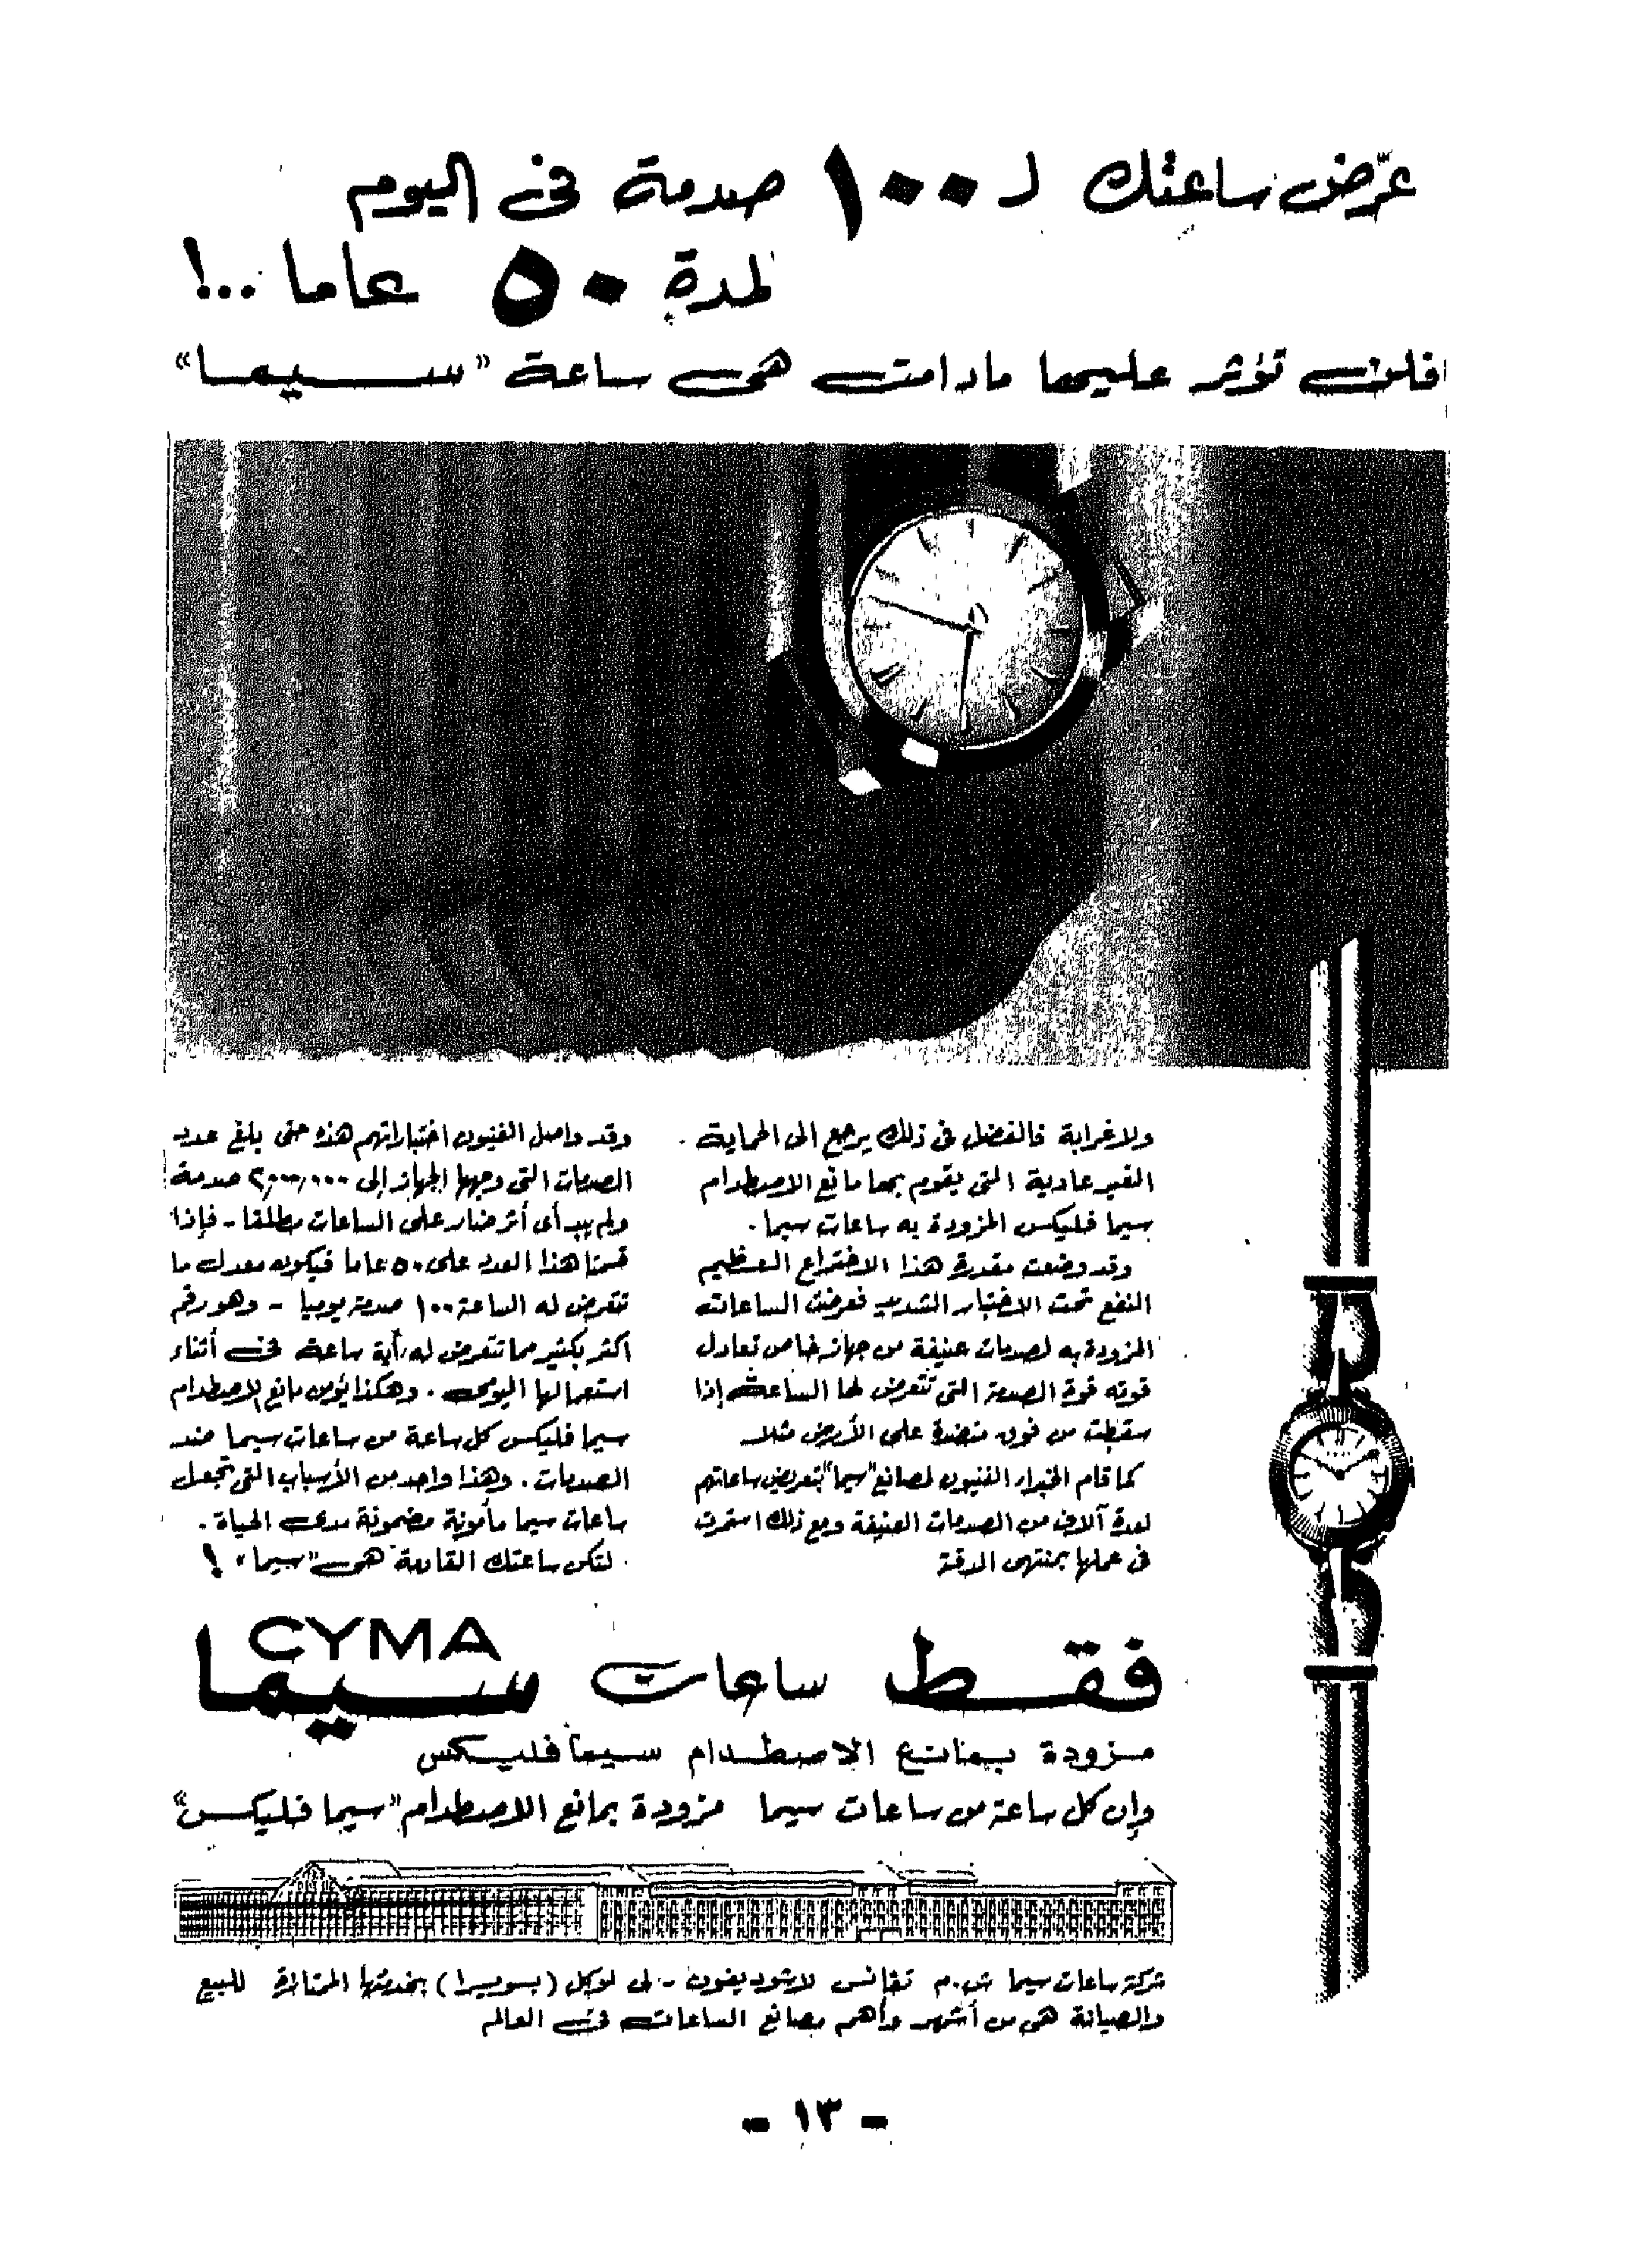 عرّض ساعتك لـ ١٠٠ صدمة فى اليوم
لمدة ٥٠ عاما ..!
فلن تؤثر عليها مادامت هى ساعة «سيما»
ولا غرابة فالفضل فى ذلك يرجع الى الحماية
الغير عادية التى يقوم بها مانع الاصطدام
سيما فليكس المزودة به ساعات سيما .
وقد وضعت مقدرة هذا الاختراع العظيم
النفع تحت الاختبار الشديد فعرضت الساعات
المزودة به لصدمات عنيفة من جهاز خاص تعادل
قوته قوة الصدمة التى تتعرض لها الساعة إذا
سقطت من فوق منضدة على الأرض مثلا
كما قام الخبراء الفنيون لمصانع "سيما" بتعريض ساعاتهم
لعدة آلاف من الصدمات العنيفة ومع ذلك استمرت
فى عملها بمنتهى الدقة
وقد واصل الفنيون اختباراتهم هذه حتى بلغ عدد
الصدمات التى وجهها الجهاز إلى ٢,٠٠٠,٠٠٠ صدمة
ولم يبد أى أثر ضار على الساعات مطلقا - فإذا
قسمنا هذا العدد على ٥٠ عاما فيكون معدل ما
تتعرض له الساعة ١٠٠ صدمة يوميا - وهو رقم
اكثر بكثير مما تتعرض له أية ساعة فى أثناء
استعمالها اليومى . وهكذا يؤمن مانع الاصطدام
سيما فليكس كل ساعة من ساعات سيما ضد
الصدمات . وهذا واحد من الأسباب التى تجعل
ساعات سيما مأمونة مضمونة مدى الحياة .
لتكن ساعتك القادمة هى "سيما" !
CYMA
فقط ساعات سيما
مزودة بمانع الاصطدام سيما فليكس
وإن كل ساعة من ساعات سيما مزودة بمانع الاصطدام "سيما فليكس"
شركة ساعات سيما ش.م تفانس لاشوديفون - لى لوكل (بسويسرا) بخدمتها الممتازة للبيع
والصيانة هى من أشهر وأهم مصانع الساعات فى العالم
- ١٣ -